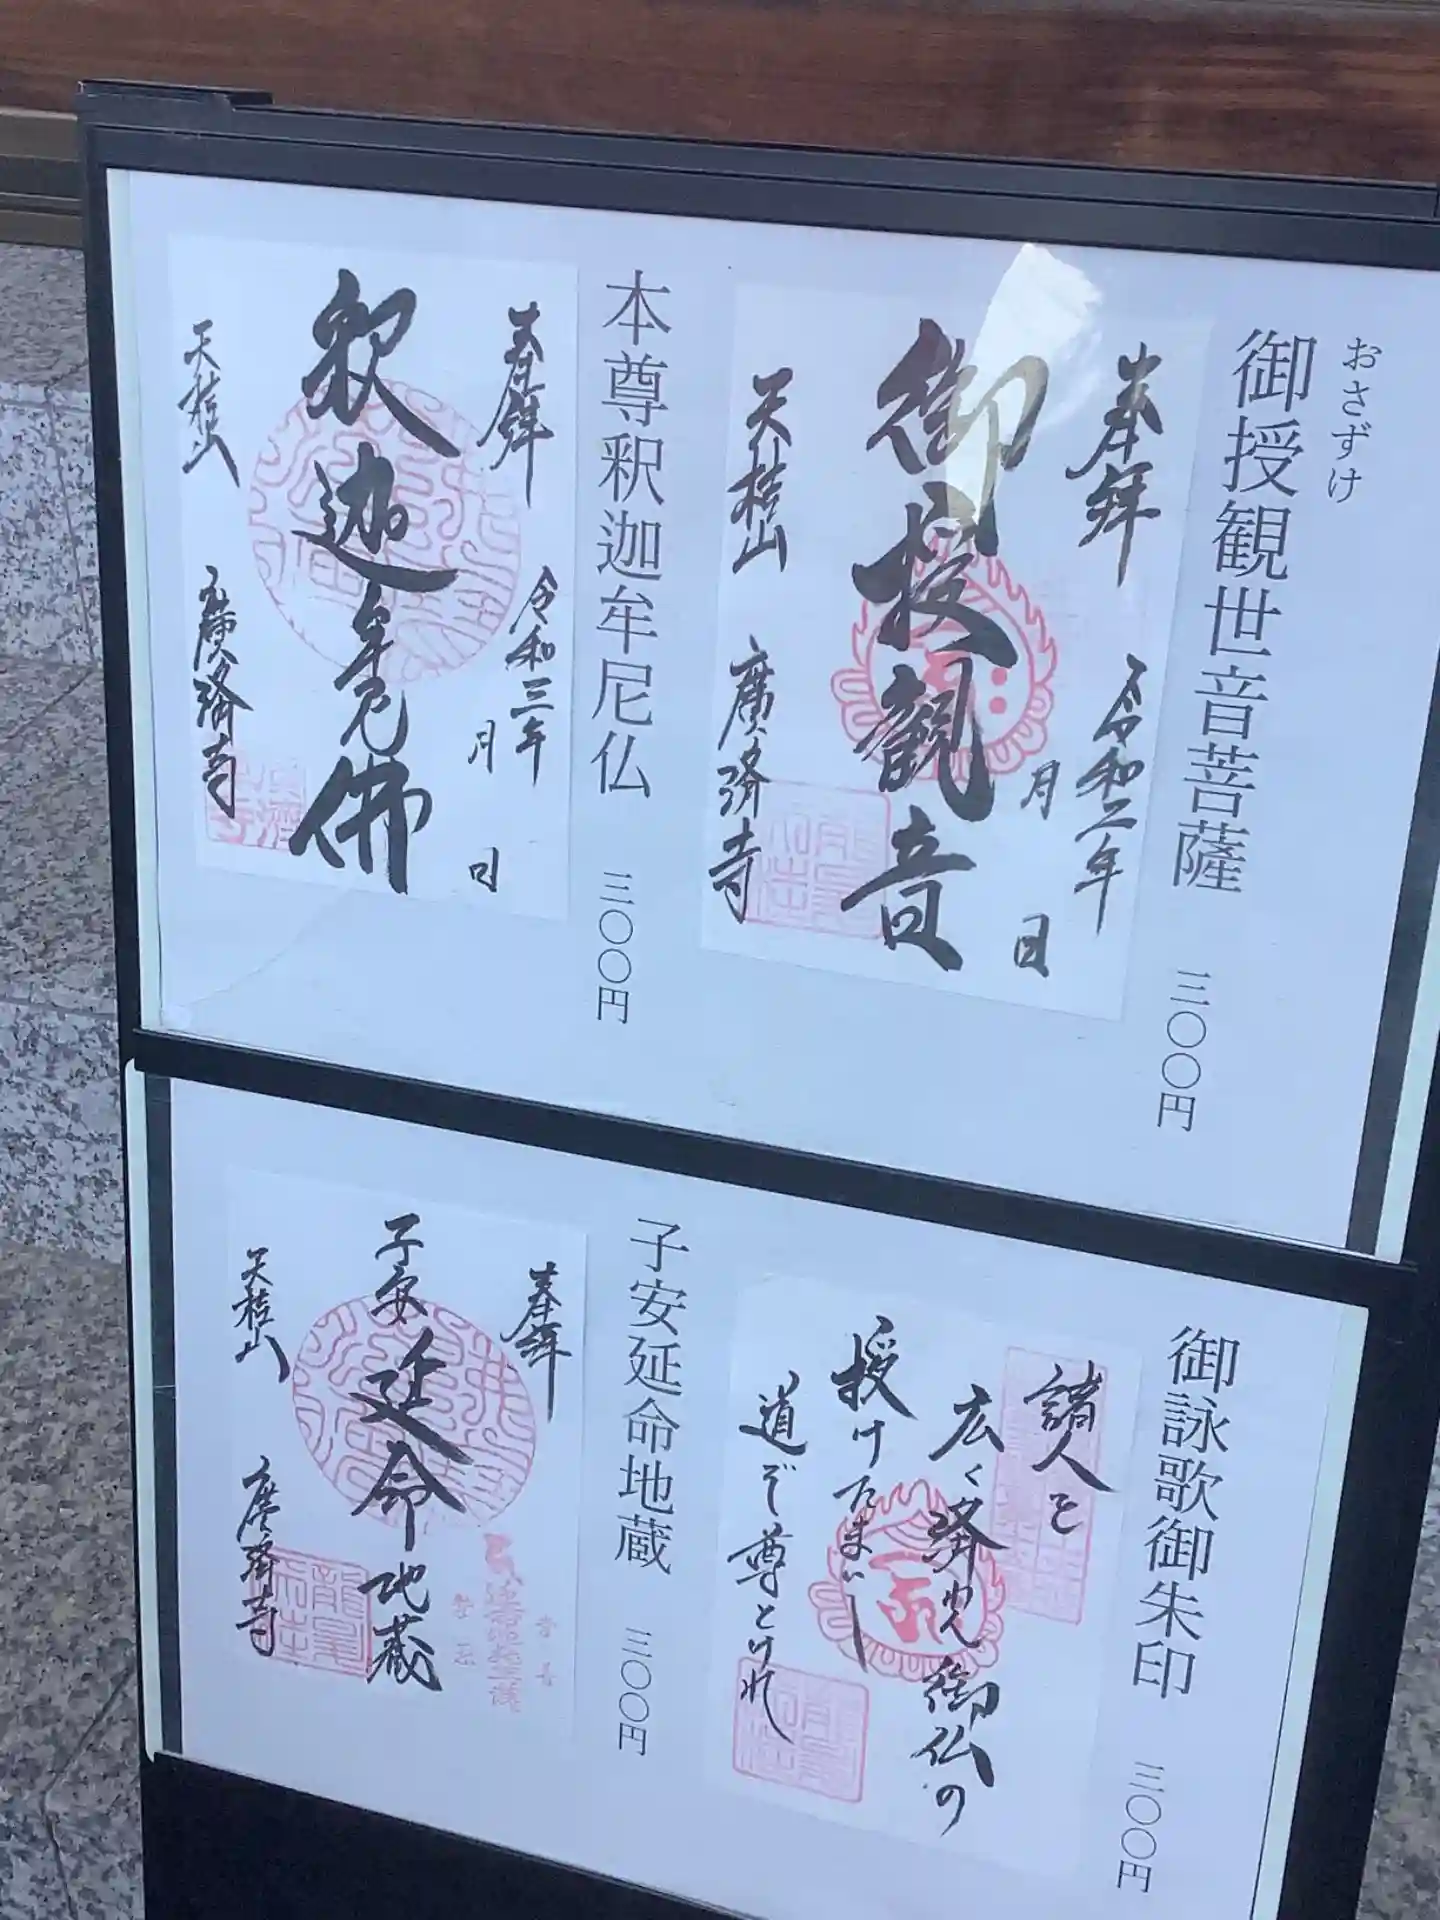 おさずけ
御授観世音菩薩 三〇〇円
奉拝 令和二年
月 日
御授観音
天桂山 廣済寺
本尊釈迦牟尼仏 三〇〇円
奉拝 令和三年
月 日
釈迦牟尼佛
天桂山 廣済寺
御詠歌御朱印 三〇〇円
諸人を
広く済児御仏の
授けたまいし
道ぞ尊とけれ
子安延命地蔵 三〇〇円
奉拝
子安延命地蔵
天桂山 廣済寺